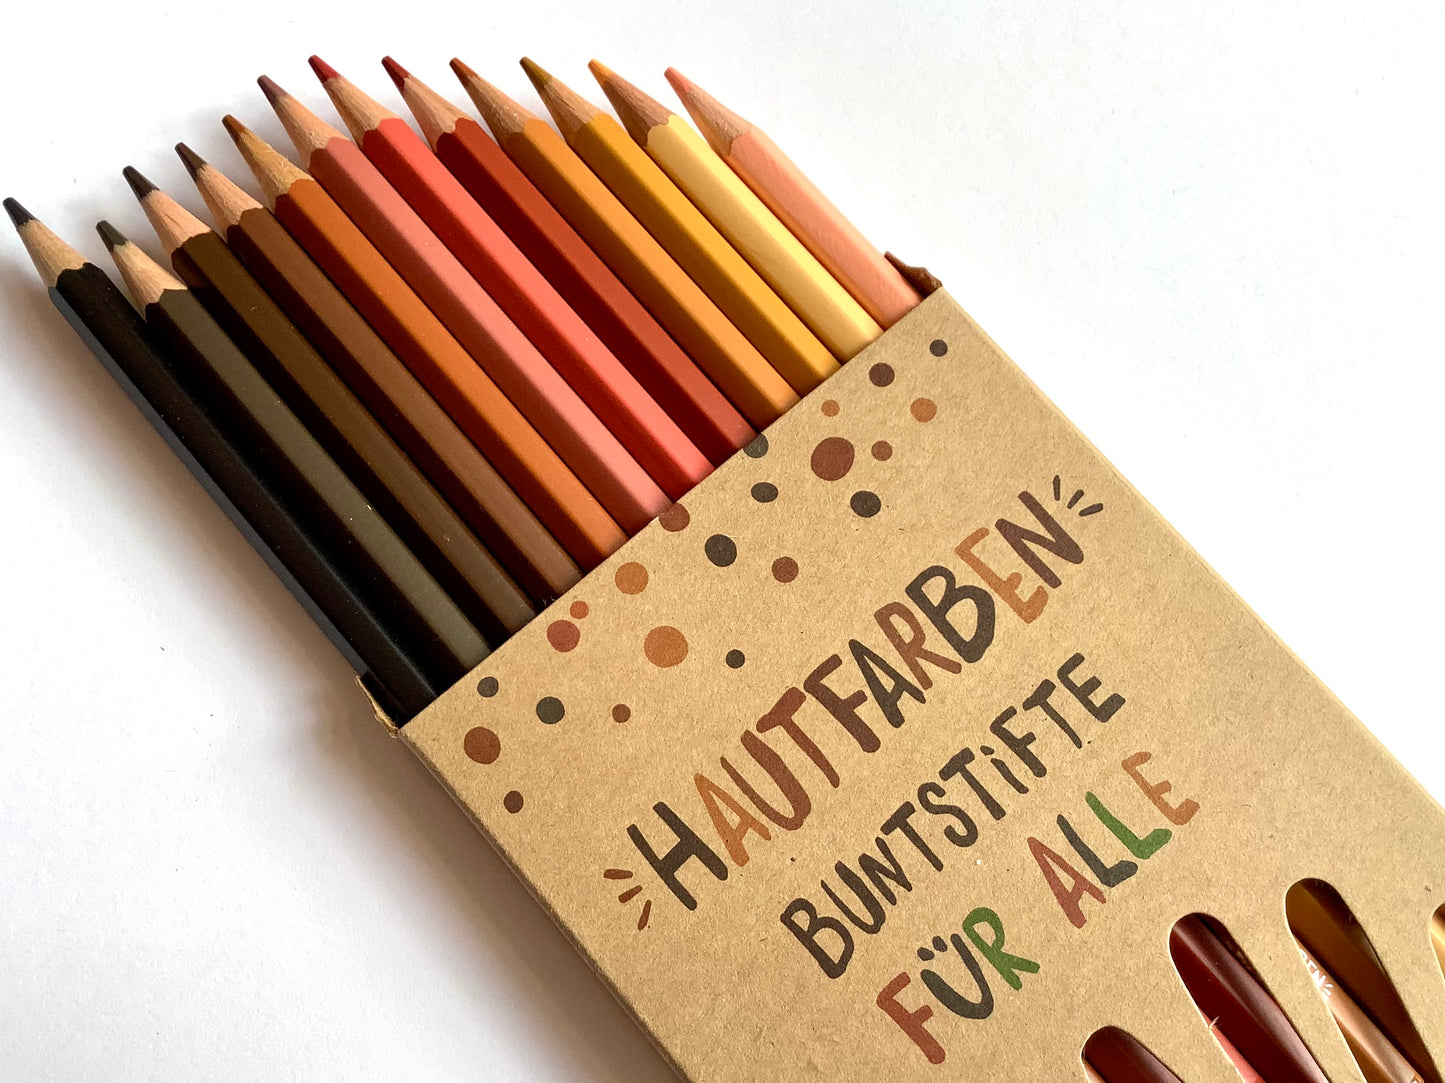 HAUTFARBEN
BUNTSTiFTE
FÜR ALLE